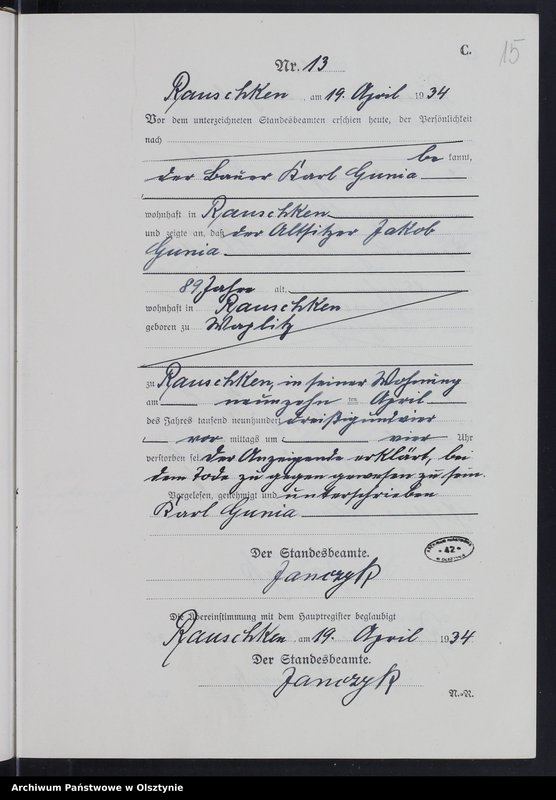 C.
15
Nr. 13
Rauschken, am 19. April 1934
Vor dem unterzeichneten Standesbeamten erschien heute, der Persönlichkeit
nach
be kannt,
der Bauer Karl Gunia
wohnhaft in Rauschken
und zeigte an, daß der Altsitzer Jakob
Gunia
89 Jahre alt,
wohnhaft in Rauschken
geboren zu Waplitz
zu Rauschken, in seiner Wohnung
am neunzehn ten April
des Jahres tausend neunhundert dreißigundvier
vor mittags um vier Uhr
verstorben sei. Der Anzeigende erklärt, bei
dem Tode zu gegen gewesen zu sein.
Vorgelesen, genehmigt und unterschrieben
Karl Gunia
Der Standesbeamte.
Janczyk
42
Die Übereinstimmung mit dem Hauptregister beglaubigt
Rauschken, am 19. April 1934
Der Standesbeamte.
Janczyk
N.-N.
Archiwum Państwowe w Olsztynie